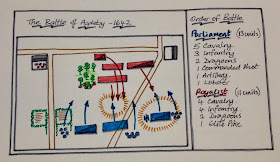 The Battle of Appleby - 1642
Order of Battle
Parliament (13 units)
5 Cavalry
3 Infantry
2 Dragoons
1 Commanded Shot
1 Artillery
1 Lobster
Royalist (11 units)
4 Cavalry
4 Infantry
2 Dragoons
1 Elite Pike